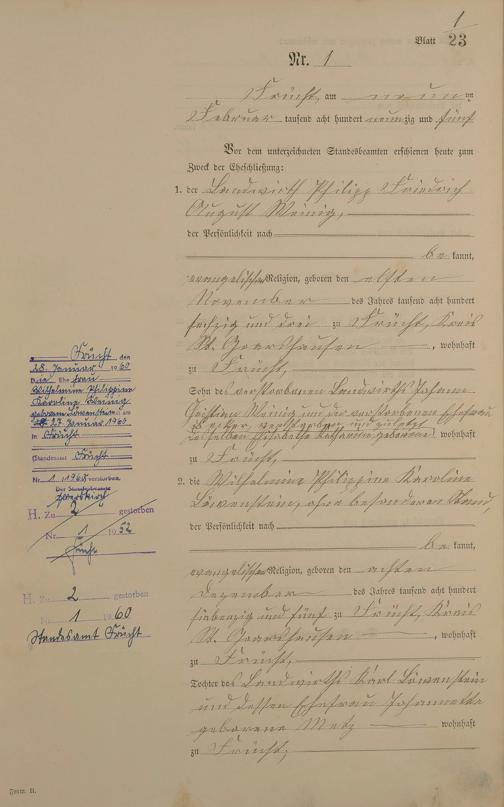 1
Blatt 23
Nr. 1
Frücht, am neunten
Februar tausend acht hundert neunzig und fünf
Vor dem unterzeichneten Standesbeamten erschienen heute zum
Zweck der Eheschließung:
1. der Landwirth Philipp Friedrich
August Meinig,
der Persönlichkeit nach
bekannt,
evangelischer Religion, geboren den elften
November des Jahres tausend acht hundert
sechzig und drei zu Frücht, Kreis
St. Goarshausen, wohnhaft
zu Frücht,
Sohn des verstorbenen Landwirths Johann
Christian Meinig und der verstorbenen Ehefrau
geborene wohnhaft
zu Frücht,
2. die Wilhelmine Philippine Karoline
Löwenstein, ohne besonderen Stand,
der Persönlichkeit nach
bekannt,
evangelischer Religion, geboren den achten
Dezember des Jahres tausend acht hundert
siebenzig und fünf zu Frücht, Kreis
St. Goarshausen, wohnhaft
zu Frücht,
Tochter des Landwirths Karl Löwenstein
und dessen Ehefrau Johannette
geborene Metz wohnhaft
zu Frücht,
Frücht, den
Januar 1960
Die Ehefrau
Wilhelmine Philippine
Karoline Meinig
geborene Löwenstein ist am
27. Januar 1960
in Frücht
Standesamt Frücht
Nr. 1 verstorben.
Der Standesbeamte
H. Zu 2 gestorben
Nr. 1 1952
Frücht
H. Zu 2 gestorben
Nr. 1 1960
Standesamt Frücht
Form. B.